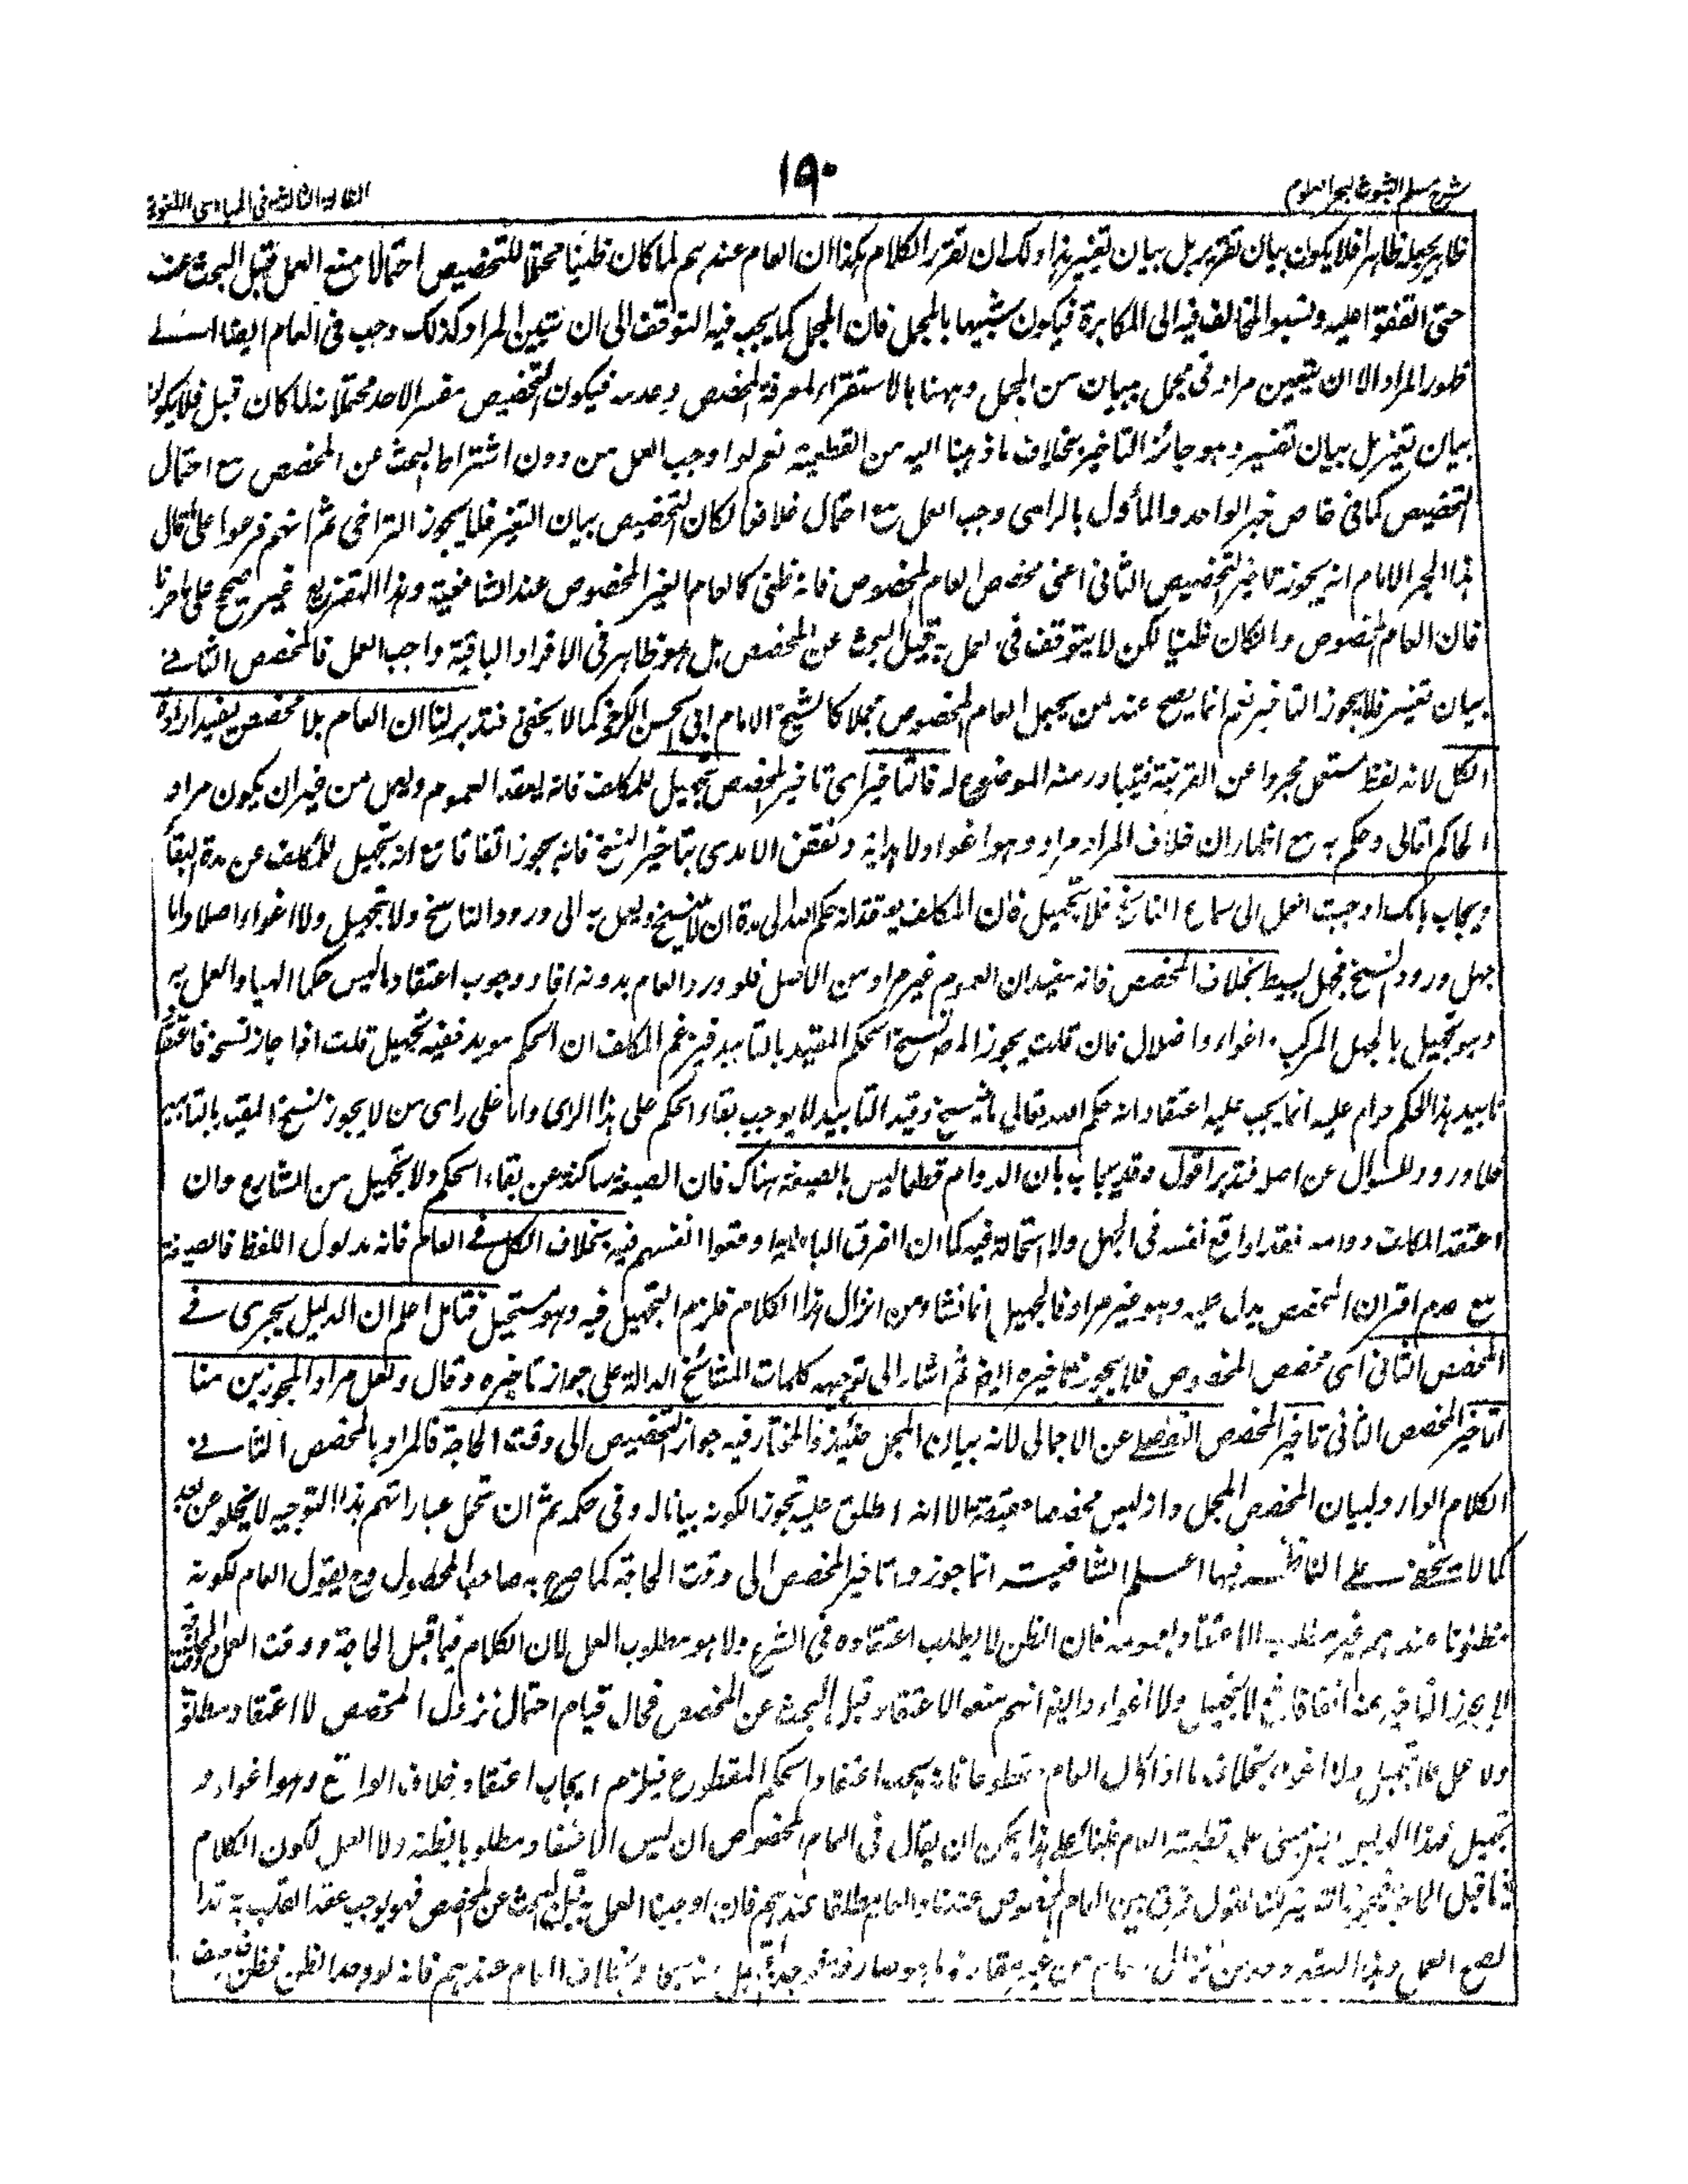 شرح مسلم الثبوت لبحر العلوم
١٩٠
المقالة الثالثة في المبادي اللغوية
ظاهر يجعله ظاهرا فلا يكون بيان تقرير بل بيان تغيير هذا ولك ان تقرر الكلام هكذا ان العام عندهم لما كان ظنيا محتملا للتخصيص احتمالا منع العمل قبل البحث عنه
حتى اتفقوا عليه ونسبوا المخالف فيه الى المكابرة فيكون شبيها بالمجمل فان المجمل كما يجب فيه التوقف الى ان يتبين المراد كذلك وجب في العام ايضا الى
ظهور المراد الا ان يتعين مراده في مجمل ببيان من المجمل وههنا بالاستقراء لمعرفة المخصص وعدمه فيكون التخصيص مفسر الاحد محتملاته لما كان قبل فلا يكون
بيان تغيير بل بيان تفسير وهو جائز التاخير بخلاف ما ذهبنا اليه من القطعية نعم لو اوجب العمل من دون اشتراط البحث عن المخصص مع احتمال
التخصيص كما في خاص خبر الواحد والمأول بالراى وجب العمل مع احتمال خلافه لكان التخصيص بيان التغيير فلا يجوز التراخي ثم انهم فرعوا على قال
هذا الحبر الامام انه يجوز تاخير التخصيص الثاني اعني مخصص العام المخصوص فانه ظني كالعام الغير المخصوص عند الشافعية وهذا التفريع غير صحيح على ما حررنا
فان العام المخصوص وان كان ظنيا لكن لا يتوقف في العمل به قبل البحث عن المخصص بل هو ظاهر في الافراد الباقية واجب العمل فالمخصص الثاني
بيان تغيير فلا يجوز التاخير نعم انما يصح عند من يجعل العام المخصوص مجملا كالشيخ الامام ابي الحسن الكرخي كما لا يخفى فتدبر لنا ان العام بلا مخصص يفيد ارادة
الكل لانه لفظ مستعمل مجردا عن القرينة فيتبادر منه الموضوع له فالتاخير اى تاخير المخصص تجهيل للمكلف فانه يعتقد العموم ويعمل من غير ان يكون مراد
الحاكم تعالى وحكم به مع اظهار ان خلاف المراد مراد وهو اغواء ولا هداية ونقض الامدى بتاخير النسخ فانه يجوز اتفاقا مع انه تجهيل للمكلف عن مدة البقاء
ويجاب بانك اوجبت العمل الى سماع الناسخ فلا تجهيل فان المكلف يعتقد انه حكم الله الى مدة ان لا ينسخ ويعمل به الى ورود الناسخ ولا تجهيل ولا اغواء اصلا واما
جهل ورود النسخ فجهل بسيط بخلاف المخصص فانه يفيد ان العموم غير مراد من الاصل فلو ورد العام بدونه افاد وجوب اعتقاد ما ليس حكما الهيا والعمل به
وهو تجهيل بالجهل المركب واغواء واضلال فان قلت يجوز نسخ الحكم المقيد بالتابيد فيزعم المكلف ان الحكم مويد ففيه تجهيل قلت اذا جاز نسخه فاعتقاد
تابيد هذا الحكم حرام عليه انما يجب عليه اعتقاد انه حكم الله تعالى ما لم ينسخ وقيد التابيد لا يوجب بقاء الحكم على هذا الراى واما على راى من لا يجوز نسخ المقيد بالتابيد
فلا ورود للسوال عن اصله فتدبر اقول وقد يجاب بان الدوام قطعا ليس بالصيغة هناك فان الصيغة ساكتة عن بقاء الحكم ولا تجهيل من الشارع وان
اعتقد المكلف دوامه فقد اوقع نفسه في الجهل ولا استحالة فيه كما ان الفرق الباطلة اوقعوا انفسهم فيه بخلاف الكل في العام فانه مدلول اللفظ فالصيغة
مع عدم اقتران المخصص يدل عليه وهو غير مراد فالجهل انما نشاء من انزال هذا الكلام فلزم التجهيل فيه وهو مستحيل فتامل اعلم ان الدليل يجرى في
المخصص الثاني اى مخصص المخصوص فلا يجوز تاخيره ايضا ثم اشار الى توجيه كلمات المشائخ الدالة على جواز تاخيره وقال ولعل مراد المجوزين منا
تاخير المخصص الثاني تاخير المخصص التفصيلي عن الاجمالي لانه بيان المجمل حينئذ والمختار فيه جواز التخصيص الى وقت الحاجة فالمراد بالمخصص الثاني
الكلام الوارد لبيان المخصص المجمل واذ ليس مخصصا حقيقة الا انه اطلق عليه تجوزا لكونه بيانا له وفي حكمه ثم ان حمل عباراتهم بهذا التوجيه لا يخلو عن بعد
كما لا يخفى على الناظر فيها اعلم الشافعية انما جوزوا تاخير المخصص الى وقت الحاجة كما صرح به صاحب المحصول وح يقول العام لكونه
مظنونا عندهم غير مطلوب الاعتقاد بعمومه فان الظن لا يطلب اعتقاده في الشرع ولا هو مطلوب العمل لان الكلام فيما قبل الحاجة ووقت العمل
لا يجوز التاخير عنه اتفاقا فح لا تجهيل ولا اغواء وايضا انهم منعوا الاعتقاد قبل البحث عن المخصص فحال قيام احتمال نزول المخصص لا اعتقاد مطلقا
ولا عمل فلا تجهيل ولا اغواء بخلاف ما اذا كان العام مقطوعا فانه يجب اعتقاد الحكم المقطوع فيلزم ايجاب اعتقاد خلاف الواقع وهو اغواء و
تجهيل فهذا الدليل ايضا مبني على قطعية العام فبناء على هذا يمكن ان يقال في العام المخصوص ان ليس الاعتقاد مطلوبا لظنه ولا العمل لكون الكلام
فيما قبل الحاجة لكنا نقول فرق بين العام المخصوص عندنا والعام مطلقا عندهم فان اوجبنا العمل به قبل البحث عن المخصص فهو يوجب عقد القلب به
العام عندهم فانه لو وجد الظن